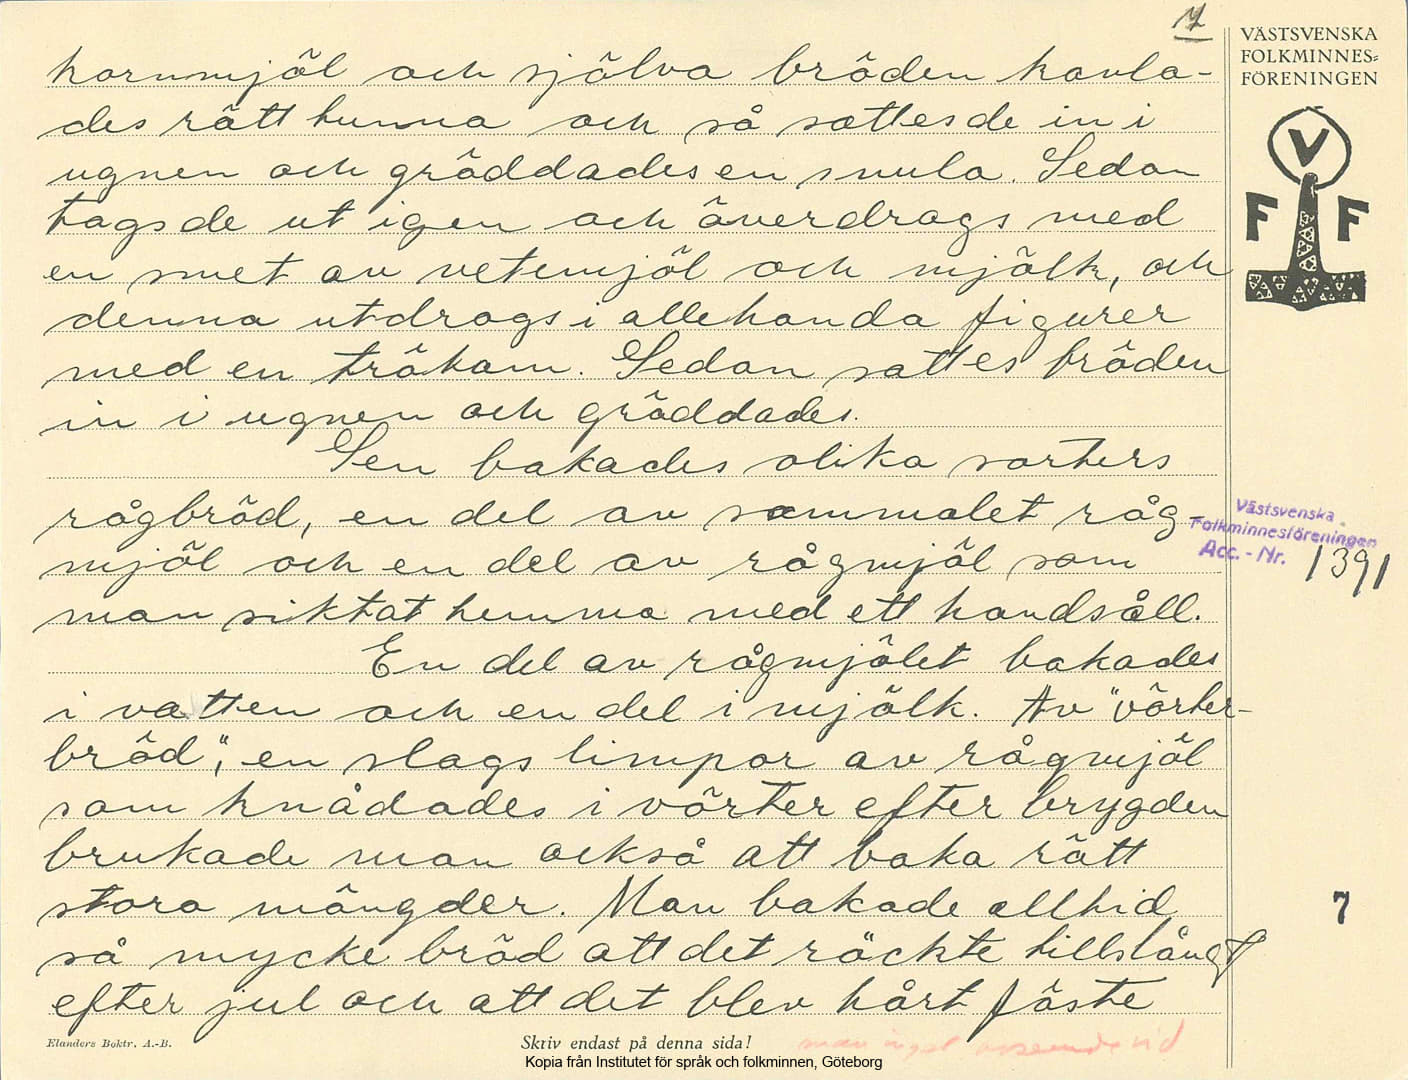 7
VÄSTSVENSKA
FOLKMINNES-
FÖRENINGEN
V
F F
kornmjöl och själva bröden kavla-
des rätt tunna och så sattes de in i
ugnen och gräddades en smula. Sedan
togs de ut igen och överdrogs med
en smet av vetemjöl och mjölk, och
denna utdrogs i allehanda figurer
med en träkam. Sedan sattes bröden
in i ugnen och gräddades.
Sen bakades olika sorters
rågbröd, en del av sammalet råg-
mjöl och en del av rågmjöl som
man siktat hemma med ett handsåll.
En del av rågmjölet bakades
i vatten och en del i mjölk. Av "vörter-
bröd", en slags limpor av rågmjöl
som knådades i vörter efter brygden
brukade man också att baka rätt
stora mängder. Man bakade alltid
så mycke bröd att det räckte tills långt
efter jul och att det blev hårt fäste
Västsvenska
Folkminnesföreningen
Acc.-Nr. 1391
7
man inget avseende vid
Elanders Boktr. A.-B.
Skriv endast på denna sida!
Kopia från Institutet för språk och folkminnen, Göteborg